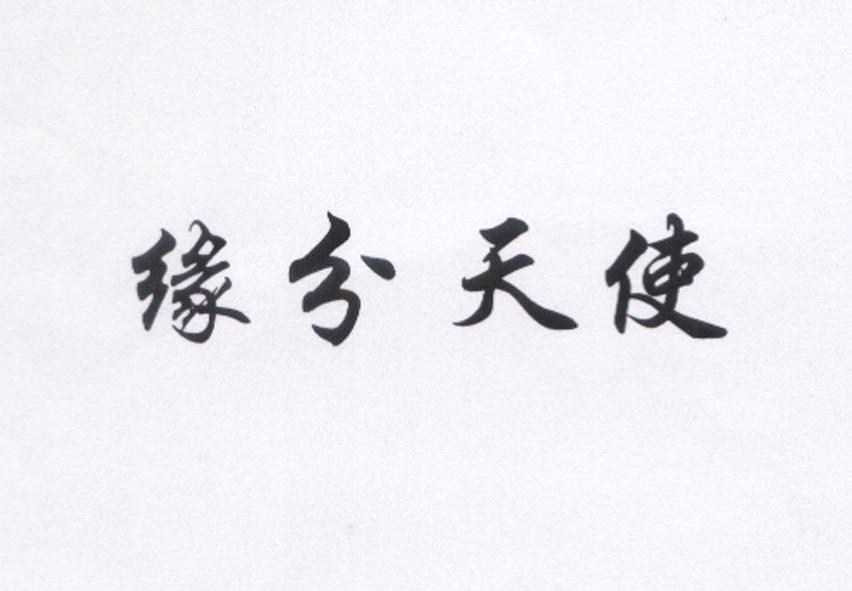 缘分天使